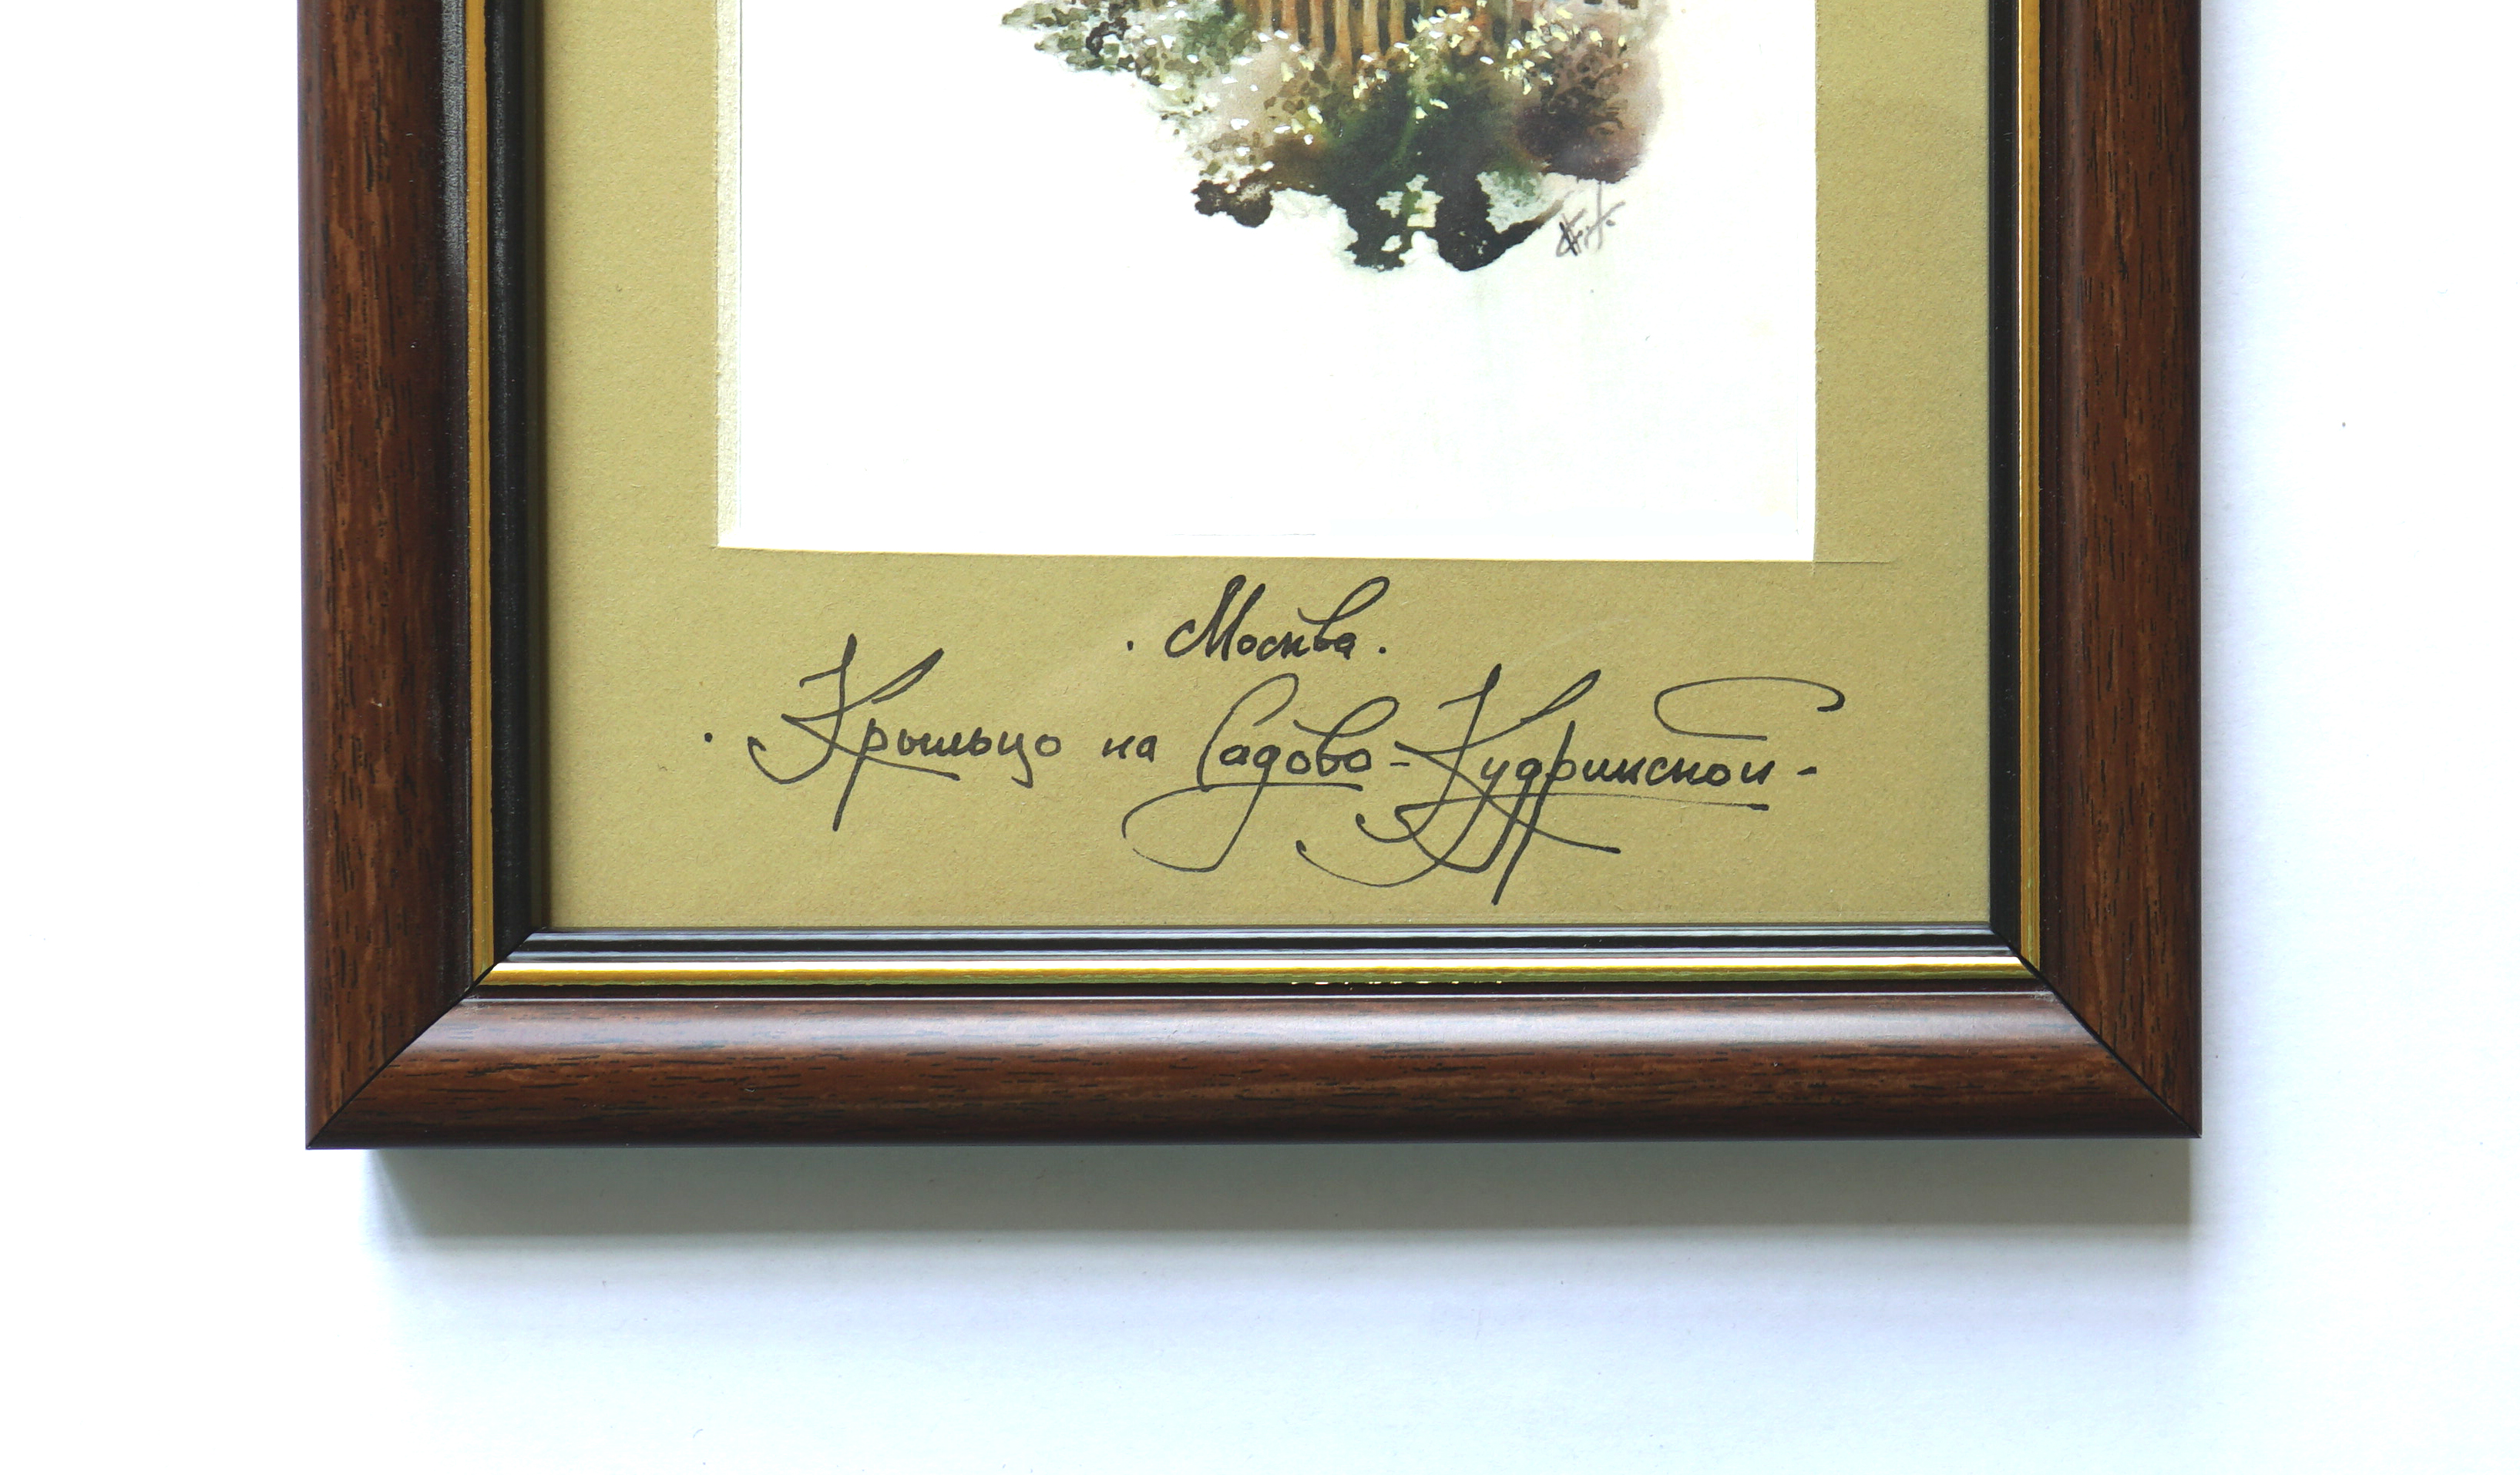 . Москва .
. Крыльцо на Садово-Кудринской -